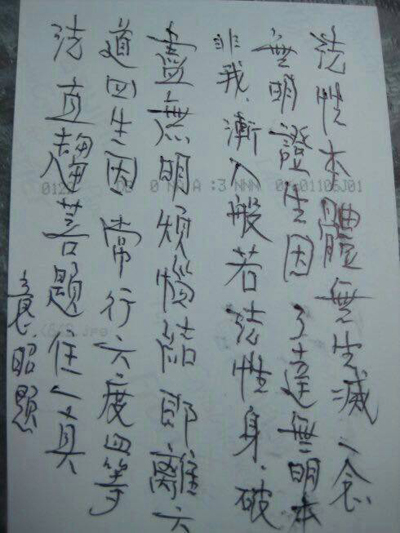 法性本體無生滅、一念
無明證生因 了達無明本
非我、漸入般若法性身、破
盡無明煩惱結 即離六
道四生因 常行六度四等
法直趨菩題任一真
昭題